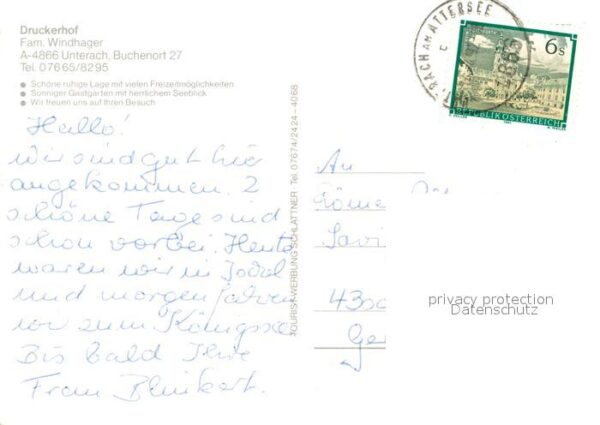 Druckerhof
Fam. Windhager
A-4866 Unterach, Buchenort 27
Tel. 07665/8295
● Schöne ruhige Lage mit vielen Freizeitmöglichkeiten
● Sonniger Gastgarten mit herrlichem Seeblick
● Wir freuen uns auf Ihren Besuch
Hallo!
Wir sind gut hier
angekommen. 2
schöne Tage sind
schon vorbei. Heute
waren wir in
und morgen fahren
wir zum Königssee
Bis bald Ihre
Frau
TOURIST-WERBUNG SCHLATTNER · Tel. 07674/2424 - 4068
ATTERSEE
4866
6s
REPUBLIK ÖSTERREICH
An
Savi
Ge
privacy protection
Datenschutz